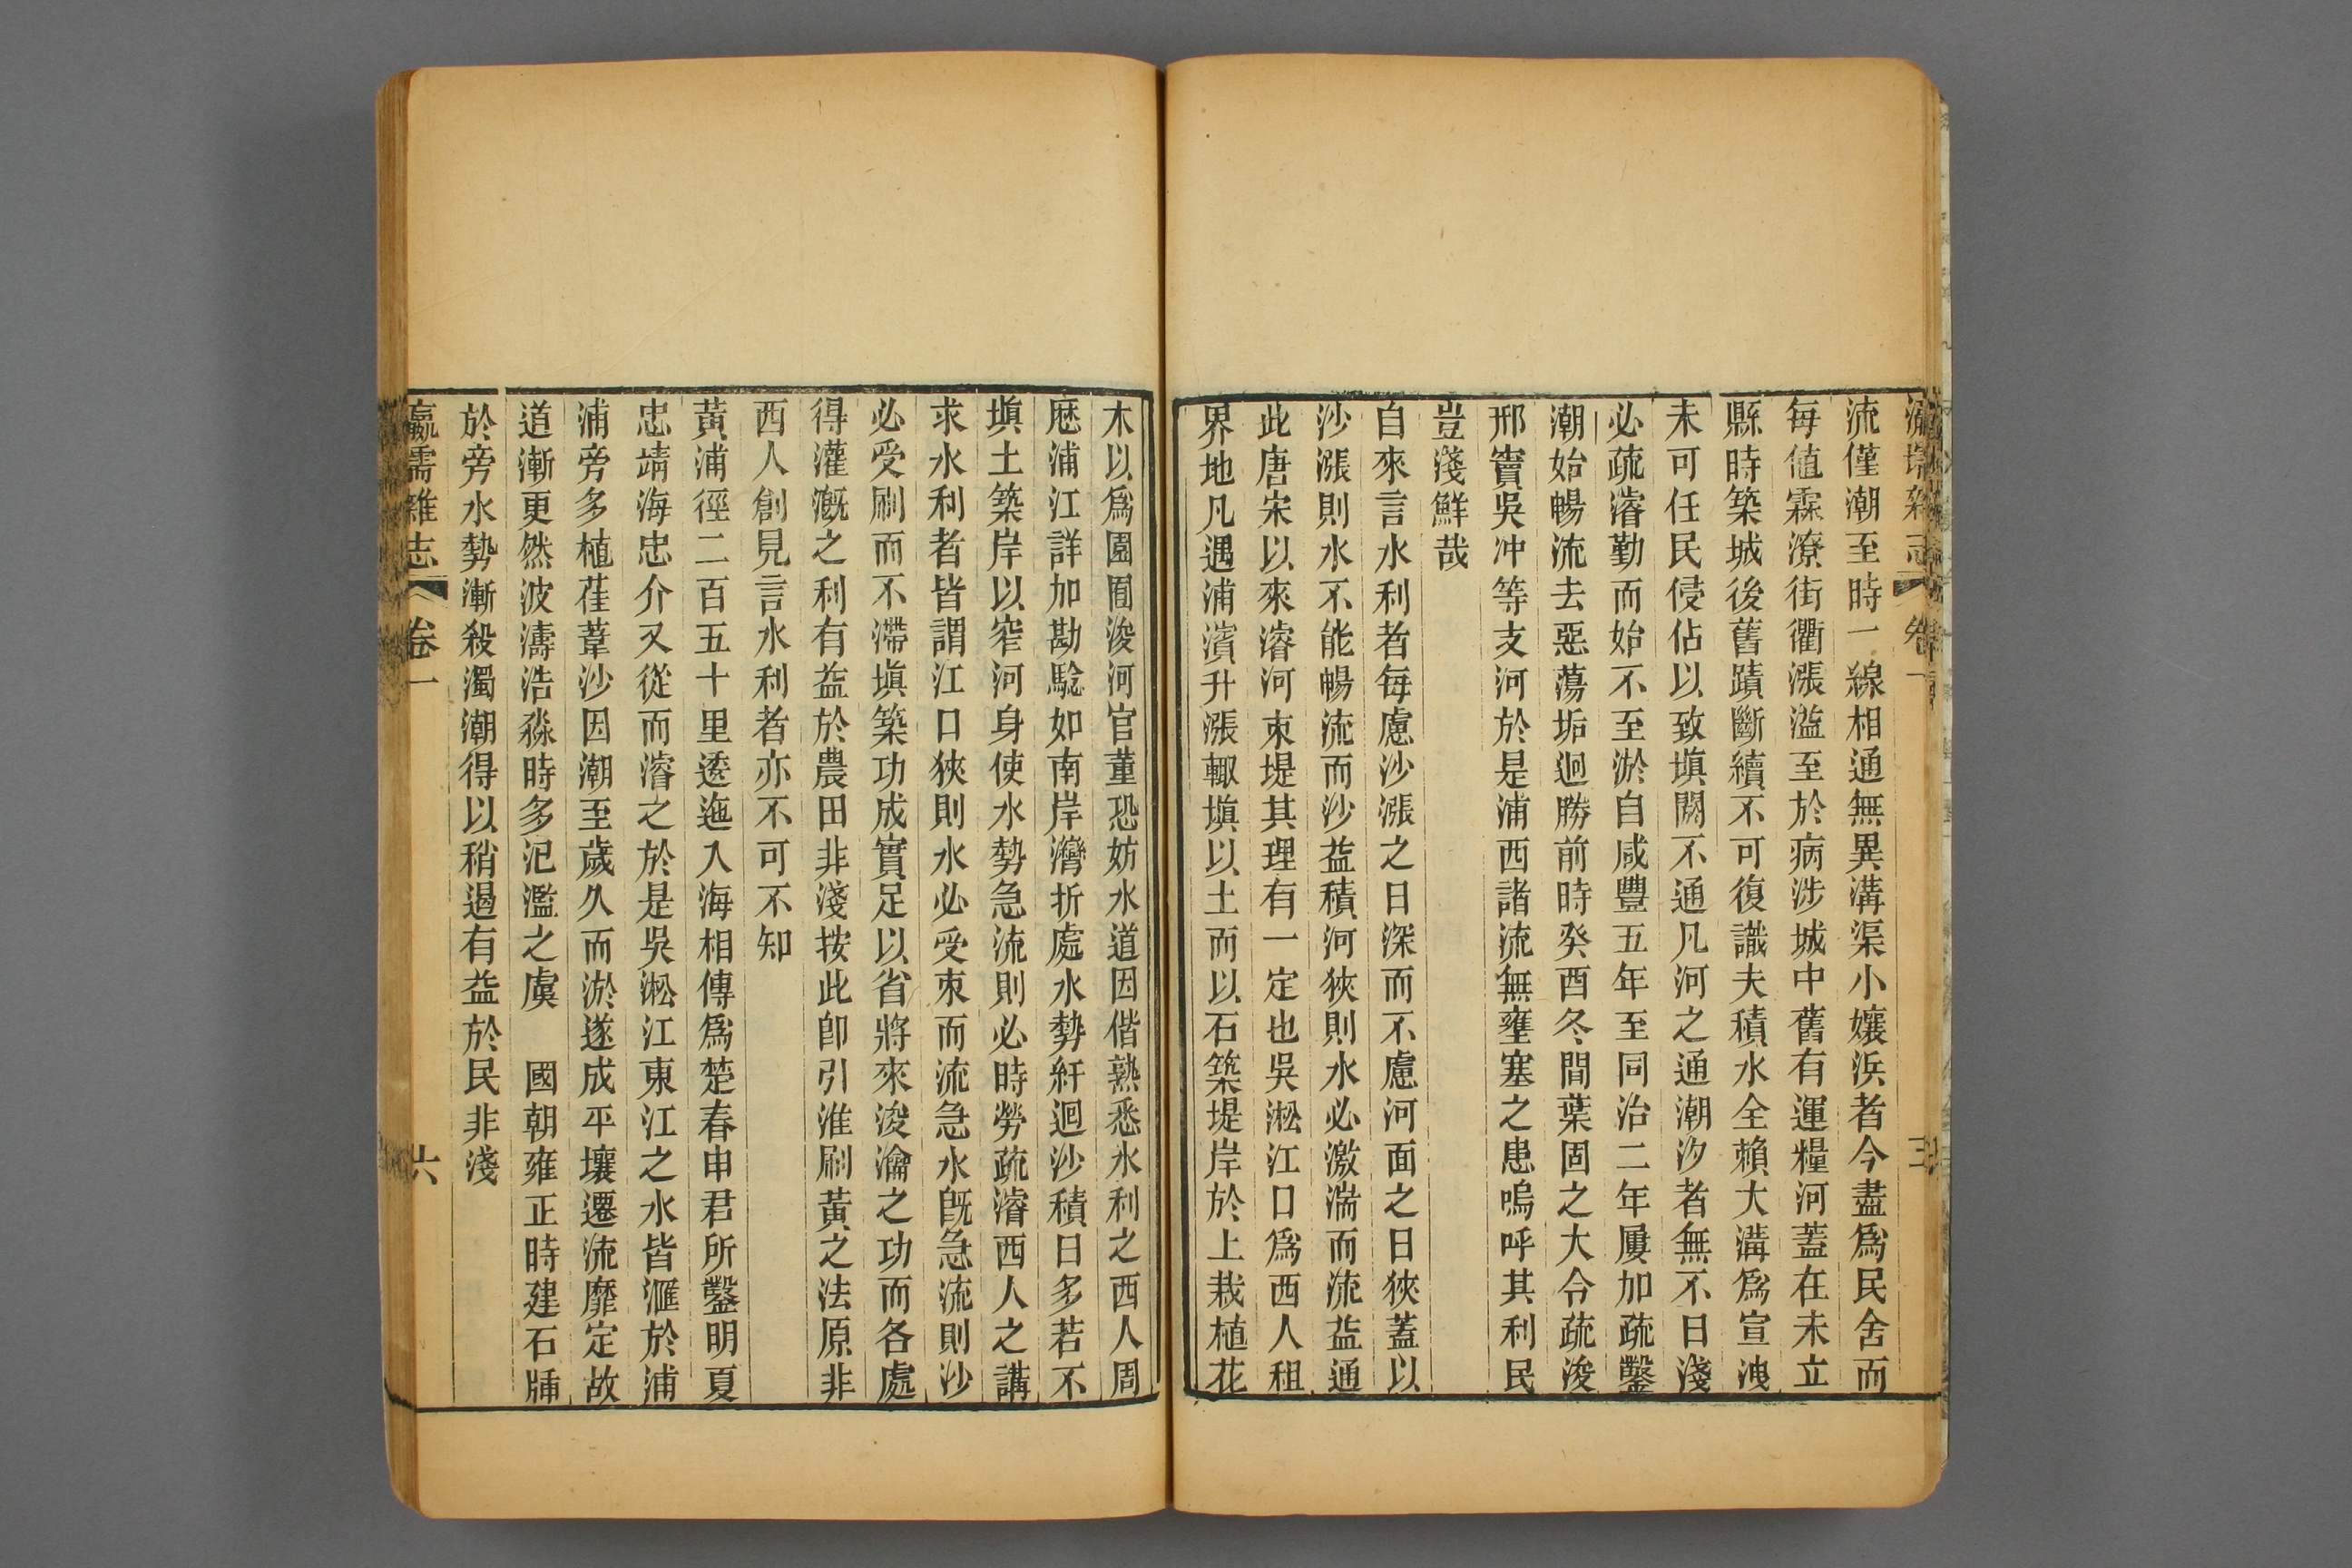 流僅潮至時一線相通無異溝渠小孃浜者今盡爲民舍而
每値霖潦街衢漲溢至於病涉城中舊有運糧河蓋在未立
縣時築城後舊蹟斷續不可復識夫積水全賴大溝爲宣洩
未可任民侵佔以致塡閼不通凡河之通潮汐者無不日淺
必疏濬勤而始不至淤自咸豐五年至同治二年屢加疏鑿
潮始暢流去惡蕩垢迥勝前時癸酉冬間葉固之大令疏浚
邢竇吳冲等支河於是浦西諸流無壅塞之患嗚呼其利民
豈淺鮮哉
自來言水利者每慮沙漲之日深而不慮河面之日狹蓋以
沙漲則水不能暢流而沙益積河狹則水必激湍而流益通
此唐宋以來濬河束堤其理有一定也吳淞江口爲西人租
界地凡遇浦濱升漲輙塡以土而以石築堤岸於上栽植花
木以爲園囿浚河官董恐妨水道因偕熟悉水利之西人周
歷浦江詳加勘騐如南岸灣折處水勢紆迴沙積日多若不
塡土築岸以窄河身使水勢急流則必時勞疏濬西人之講
求水利者皆謂江口狹則水必受束而流急水旣急流則沙
必受刷而不滯塡築功成實足以省將來浚瀹之功而各處
得灌漑之利有益於農田非淺按此卽引淮刷黃之法原非
西人創見言水利者亦不可不知
黃浦徑二百五十里逶迤入海相傳爲楚春申君所鑿明夏
忠靖海忠介又從而濬之於是吳淞江東江之水皆滙於浦
浦旁多植萑葦沙因潮至歲久而淤遂成平壤遷流靡定故
道漸更然波濤浩淼時多氾濫之虞　國朝雍正時建石牐
於旁水勢漸殺濁潮得以稍遏有益於民非淺
瀛壖雜志　卷一　六